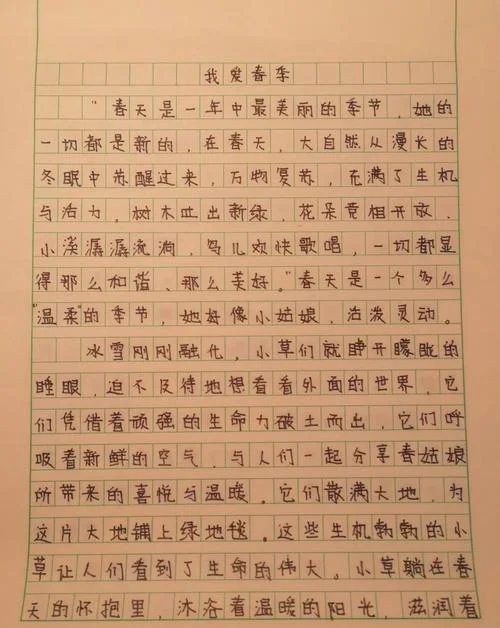 我爱春季
"春天是一年中最美丽的季节,她的
一切都是新的,在春天,大自然从漫长的
冬眠中苏醒过来,万物复苏,充满了生机
与活力。树木吐出新绿,花朵竞相开放,
小溪潺潺流淌,鸟儿欢快歌唱,一切都显
得那么和谐、那么美好。"春天是一个多么
"温柔"的季节,她好像小姑娘,活泼灵动。
冰雪刚刚融化,小草们就睁开朦胧的
睡眼,迫不及待地想看看外面的世界,它
们凭借着顽强的生命力破土而出,它们呼
吸着新鲜的空气,与人们一起分享春姑娘
所带来的喜悦与温暖。它们散满大地,为
这片大地铺上绿地毯。这些生机勃勃的小
草让人们看到了生命的伟大。小草躺在春
天的怀抱里,沐浴着温暖的阳光,滋润着